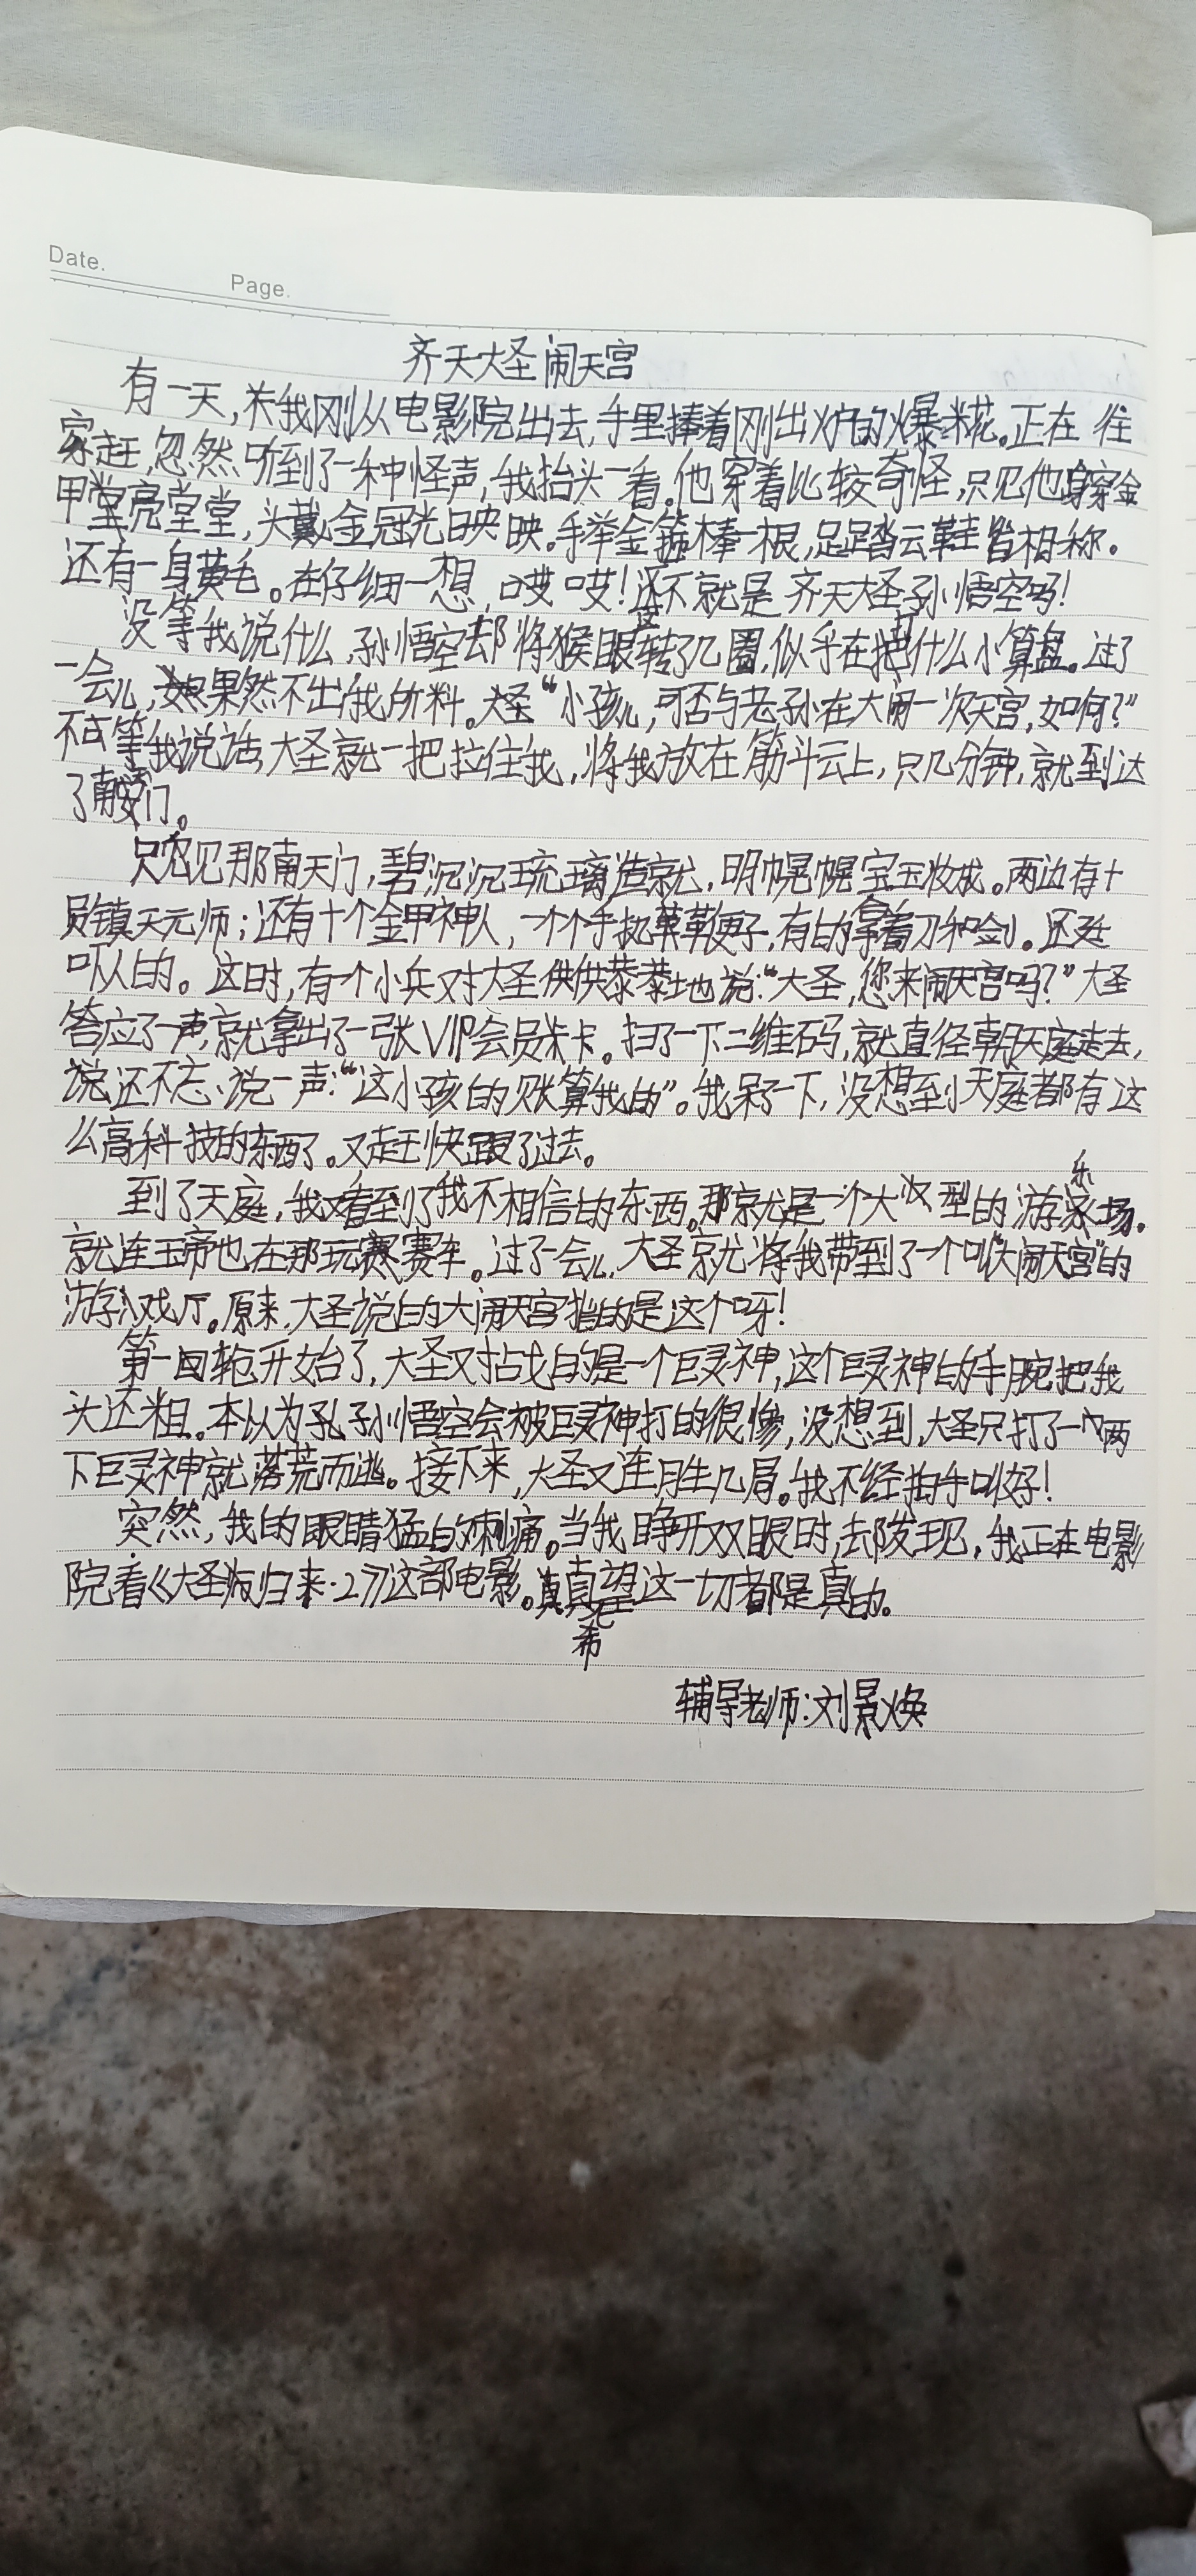 Date.
Page.
齐天大圣闹天宫
有一天,我刚从电影院出去,手里捧着刚出炉的爆米花。正在往
家赶,忽然听到了一种怪声,我抬头一看。他穿着比较奇怪,只见他身穿金
甲亮堂堂,头戴金冠光映映。手举金箍棒一根,足踏云鞋皆相称。
还有一身黄毛。在仔细一想,哎哎!这不就是齐天大圣孙悟空吗!
没等我说什么,孙悟空却将猴眼转了几圈,似乎在打什么小算盘。过了
一会儿,果然不出我所料。大圣“小孩儿,可否与老孙在大闹一次天宫,如何?”
不等我说话,大圣就一把拉住我,将我放在筋斗云上,只几分钟,就到达
了南天门。
只见那南天门,碧沉沉琉璃造就,明幌幌宝玉妆成。两边有十
员镇天元师;还有十个金甲神人,一个个手执鞭子,有的拿着刀和剑。还廷
吓人的。这时,有一个小兵对大圣供供恭恭地说:“大圣,您来闹天宫吗?”大圣
答应了一声,就拿出了一张VIP会员卡。扫了一下二维码,就直径朝天庭走去,
还不忘说一声:“这小孩的账算我的”。我呆了一下,没想到天庭都有这
么高科技的东西了。又赶快跟了过去。
到了天庭,我又看到了我不相信的东西。那就是一个大型的游乐场。
就连玉帝也在那玩赛车。过了一会儿,大圣就将我带到了一个叫“大闹天宫”的
游戏厅。原来,大圣说的大闹天宫指的是这个呀!
第一回轮开始了,大圣对战的是一个巨灵神,这个巨灵神的手腕把我
头还粗。本以为孙悟空会被巨灵神打的很惨,没想到,大圣只打了一两
下巨灵神就落荒而逃。接下来,大圣又连胜几局。我不经拍手叫好!
突然,我的眼睛猛的刺痛。当我睁开双眼时,却发现,我正在电影
院看《大圣归来·2》这部电影。真希望这一切都是真的。
辅导老师:刘景焕